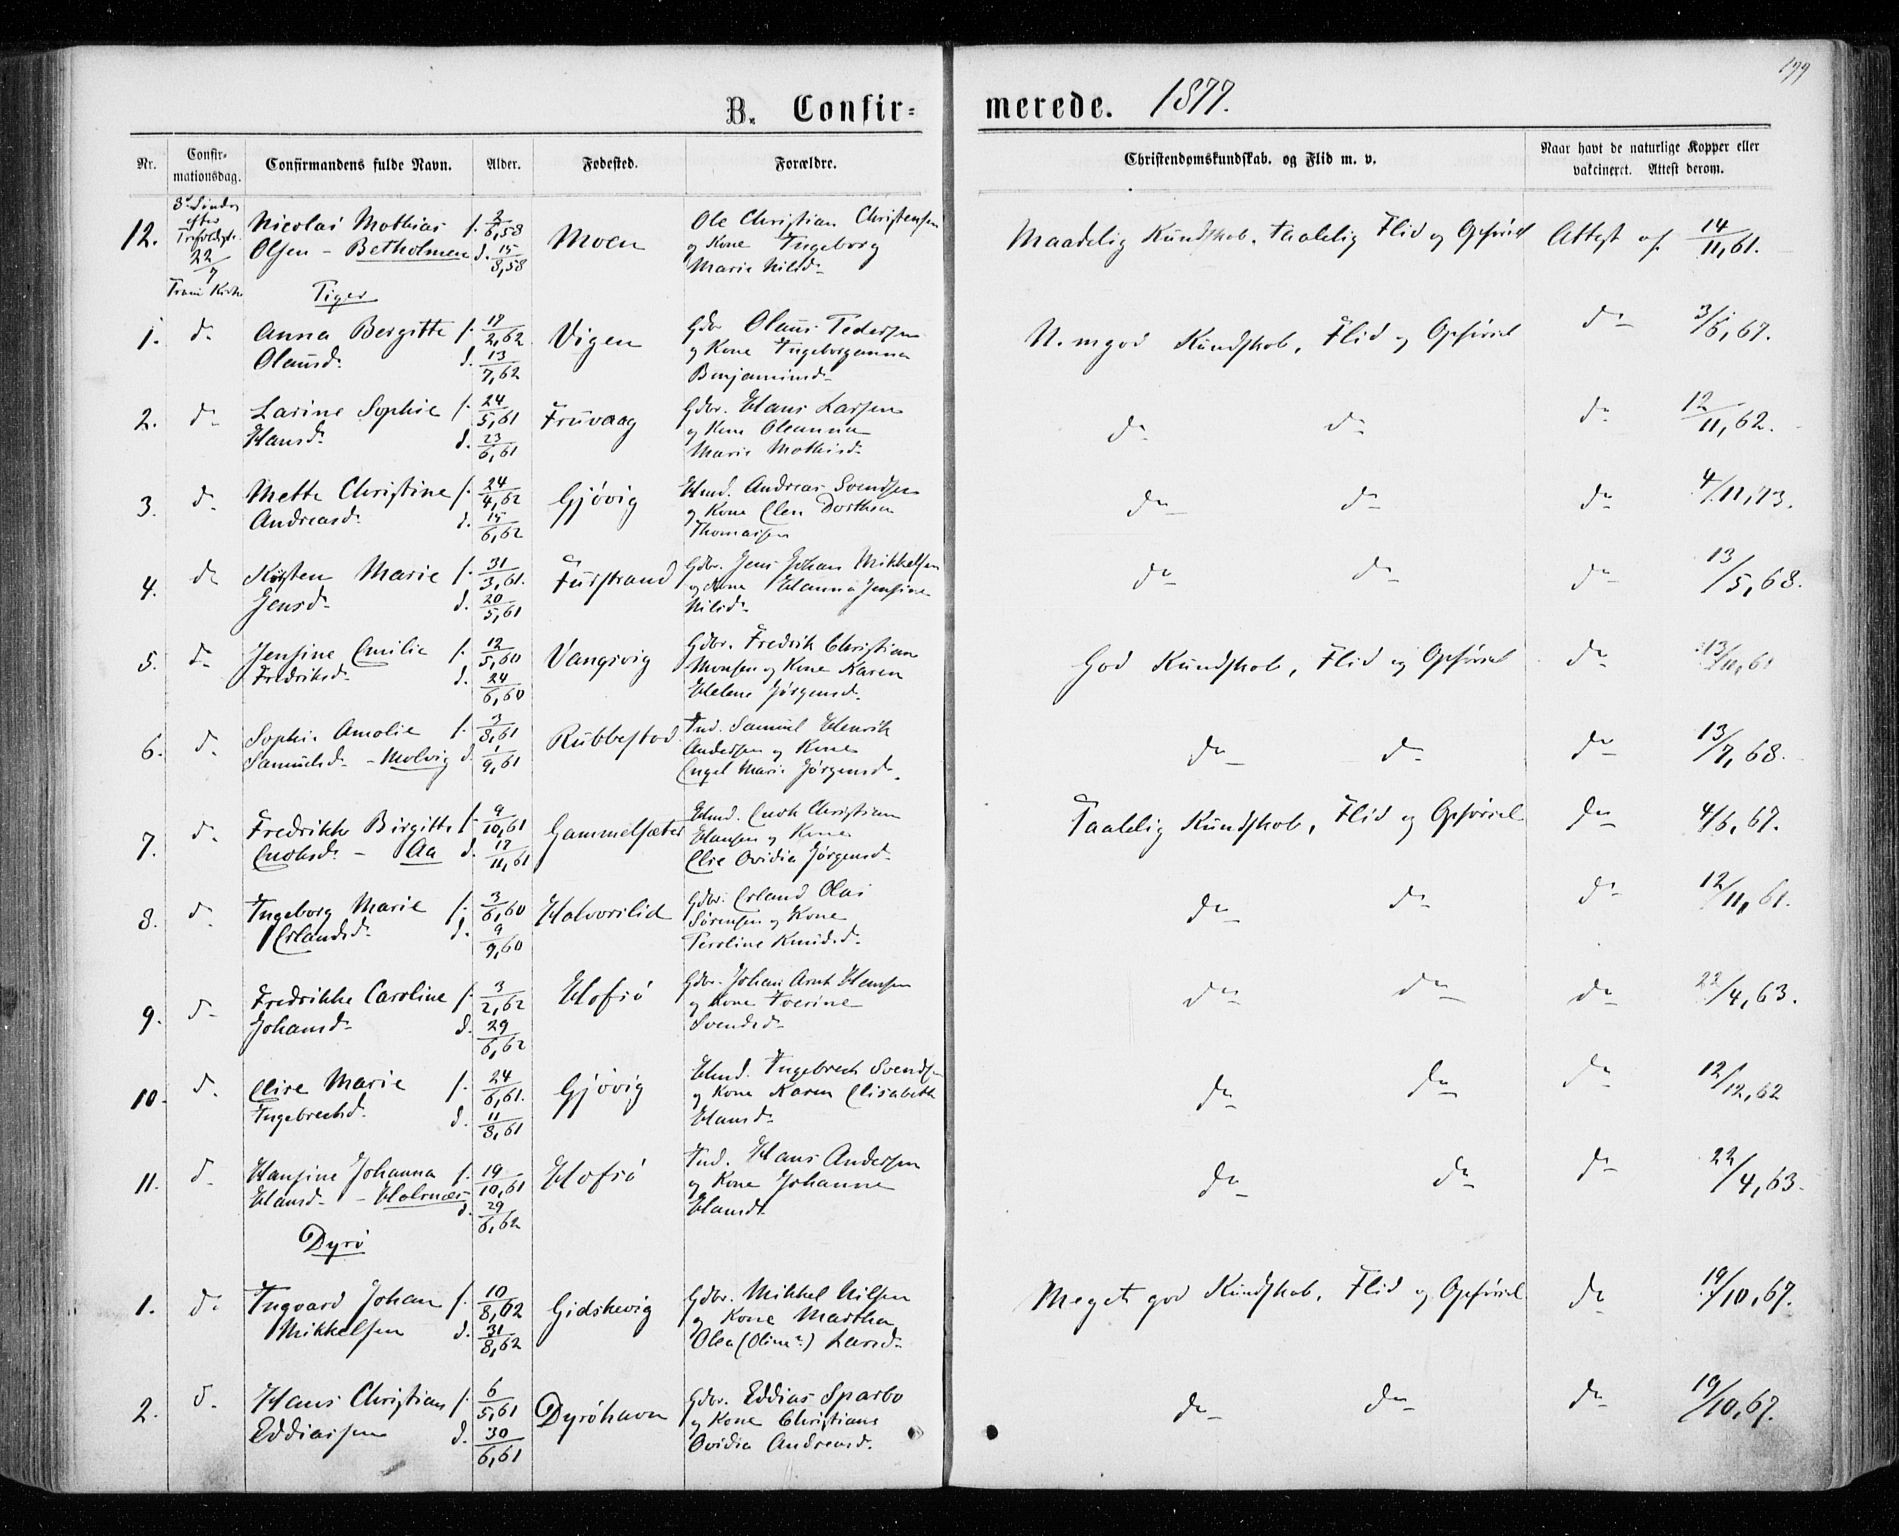 199
B. Confir-
merede. 1877.
Nr.
Confir-
mationsdag.
Confirmandens fulde Navn.
Alder.
Fødested.
Forældre.
Christendomskundskab. og Flid m. v.
Naar havt de naturlige Kopper eller
vakcineret. Attest derom.
12.
efter
22/7
Nicolai Mathias f. 2/6,58
Olsen - Betholmen d. 15/8,58
Moen
Ole Christian Christensen
og Kone Ingeborg
Marie Nilsd.
Maadelig Kundskab. taalelig Flid og Opførsel
Attest af 14/11,61.
Piger
1. do Anna Bergitte f. 17/2,62
Olausd. d. 13/7,62
Vigen
Gdbr Olaus Pedersen
og Kone Ingeborganna
Benjaminsd.
N. mgod Kundskab, Flid og Opførsel
do 3/6,67.
2. do Larine Sophie f. 24/5,61
Hansd. d. 23/6,61
Fruvaag
Gdbr. Hans Larsen
og Kone Oleanna
Marie Mathisd.
do do do 12/11,62.
3. do Mette Christine f. 24/4,62
Andreasd. d. 15/6,62
Gjövig
Hmd. Andreas Svendsen
og Kone Elen Dorthea
Thomassen
do do do 4/11,73.
4. do Kirsten Marie f. 31/3,61.
Jensd. d. 20/5,61
Furstrand
Gdbr. Jens Johan Mikkelsen
og Kone Hanna Jensine
Nilsd.
do do do 13/5,68.
5. do Jensine Emilie f. 12/5,60
Fredriksd. d. 24/6,60
Vangsvig
Gdbr. Fredrik Christian
Monsen og Kone Karen
Helene Jørgensd.
God Kundskab, Flid og Opførsel do
6. do Sophie Amalie f. 3/8,61
Samuelsd. - Molvig d. 1/9,61
Rubbestad
Ind. Samuel Henrik
Andersen og Kone
Engel Marie Jørgensd.
do do do 13/7,68.
7. do Fredrikke Birgitte f. 9/10,61
Enoksd. - Aa d. 17/11,61
Gammelsæter
Hmd. Enok Christian
Hansen og Kone
Else Ovidia Jørgensd.
Taalelig Kundskab, Flid og Opførsel do 4/6,67.
8. do Ingeborg Marie f. 3/6,60
Erlandsd. d. 9/9,60
Halvorslid
Gdbr. Erland Olai
Sörensen og Kone
Peroline Knudsd.
do do do 12/11,61.
9. do Fredrikke Caroline f. 3/2,62
Johansd. d. 29/6,62
Hofsö
Gdbr. Johan Arnt Hansen
og Kone Iverine
Svendsd.
do do do 22/4,63.
10. do Elise Marie f. 24/6,61.
Ingebrectsd. d. 11/8,61
Gjövig
Hmd. Ingebrect Svends.
og Kone Karen Elisabeth
Hansd.
do do do 12/12,62
11. do Hansine Johanna f. 19/10,61
Hansd. - Holmnes d. 29/6,62
Hofsö
Ind. Hans Andersen
og Kone Johanne
Hansd.
do do do 22/4,63.
Dyrö
1. do Ingvard Johan f. 10/8,62
Mikkelsen d. 31/8,62
Gidskevig
Gdbr. Mikkel Nilsen
og Kone Martha
Olea (Oline?) Larsd.
Meget god Kundskab, Flid og Opførsel do 19/10,67.
2. do Hans Christian f. 6/5,61
Eddiassen d. 30/6,61
Dyröhavn
Gdbr. Eddias Sparbo
og Kone Christiane
Ovidia Andreasd.
do do do 19/10,67.